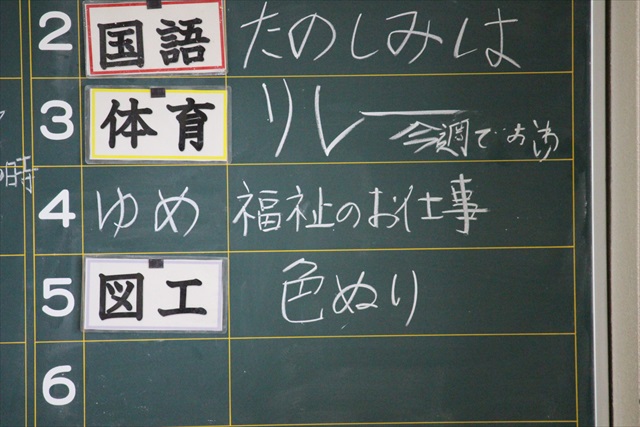 2 国語 たのしみは
3 体育 リレー 今週でおわり
4 ゆめ 福祉のお仕事
5 図工 色ぬり
6
時